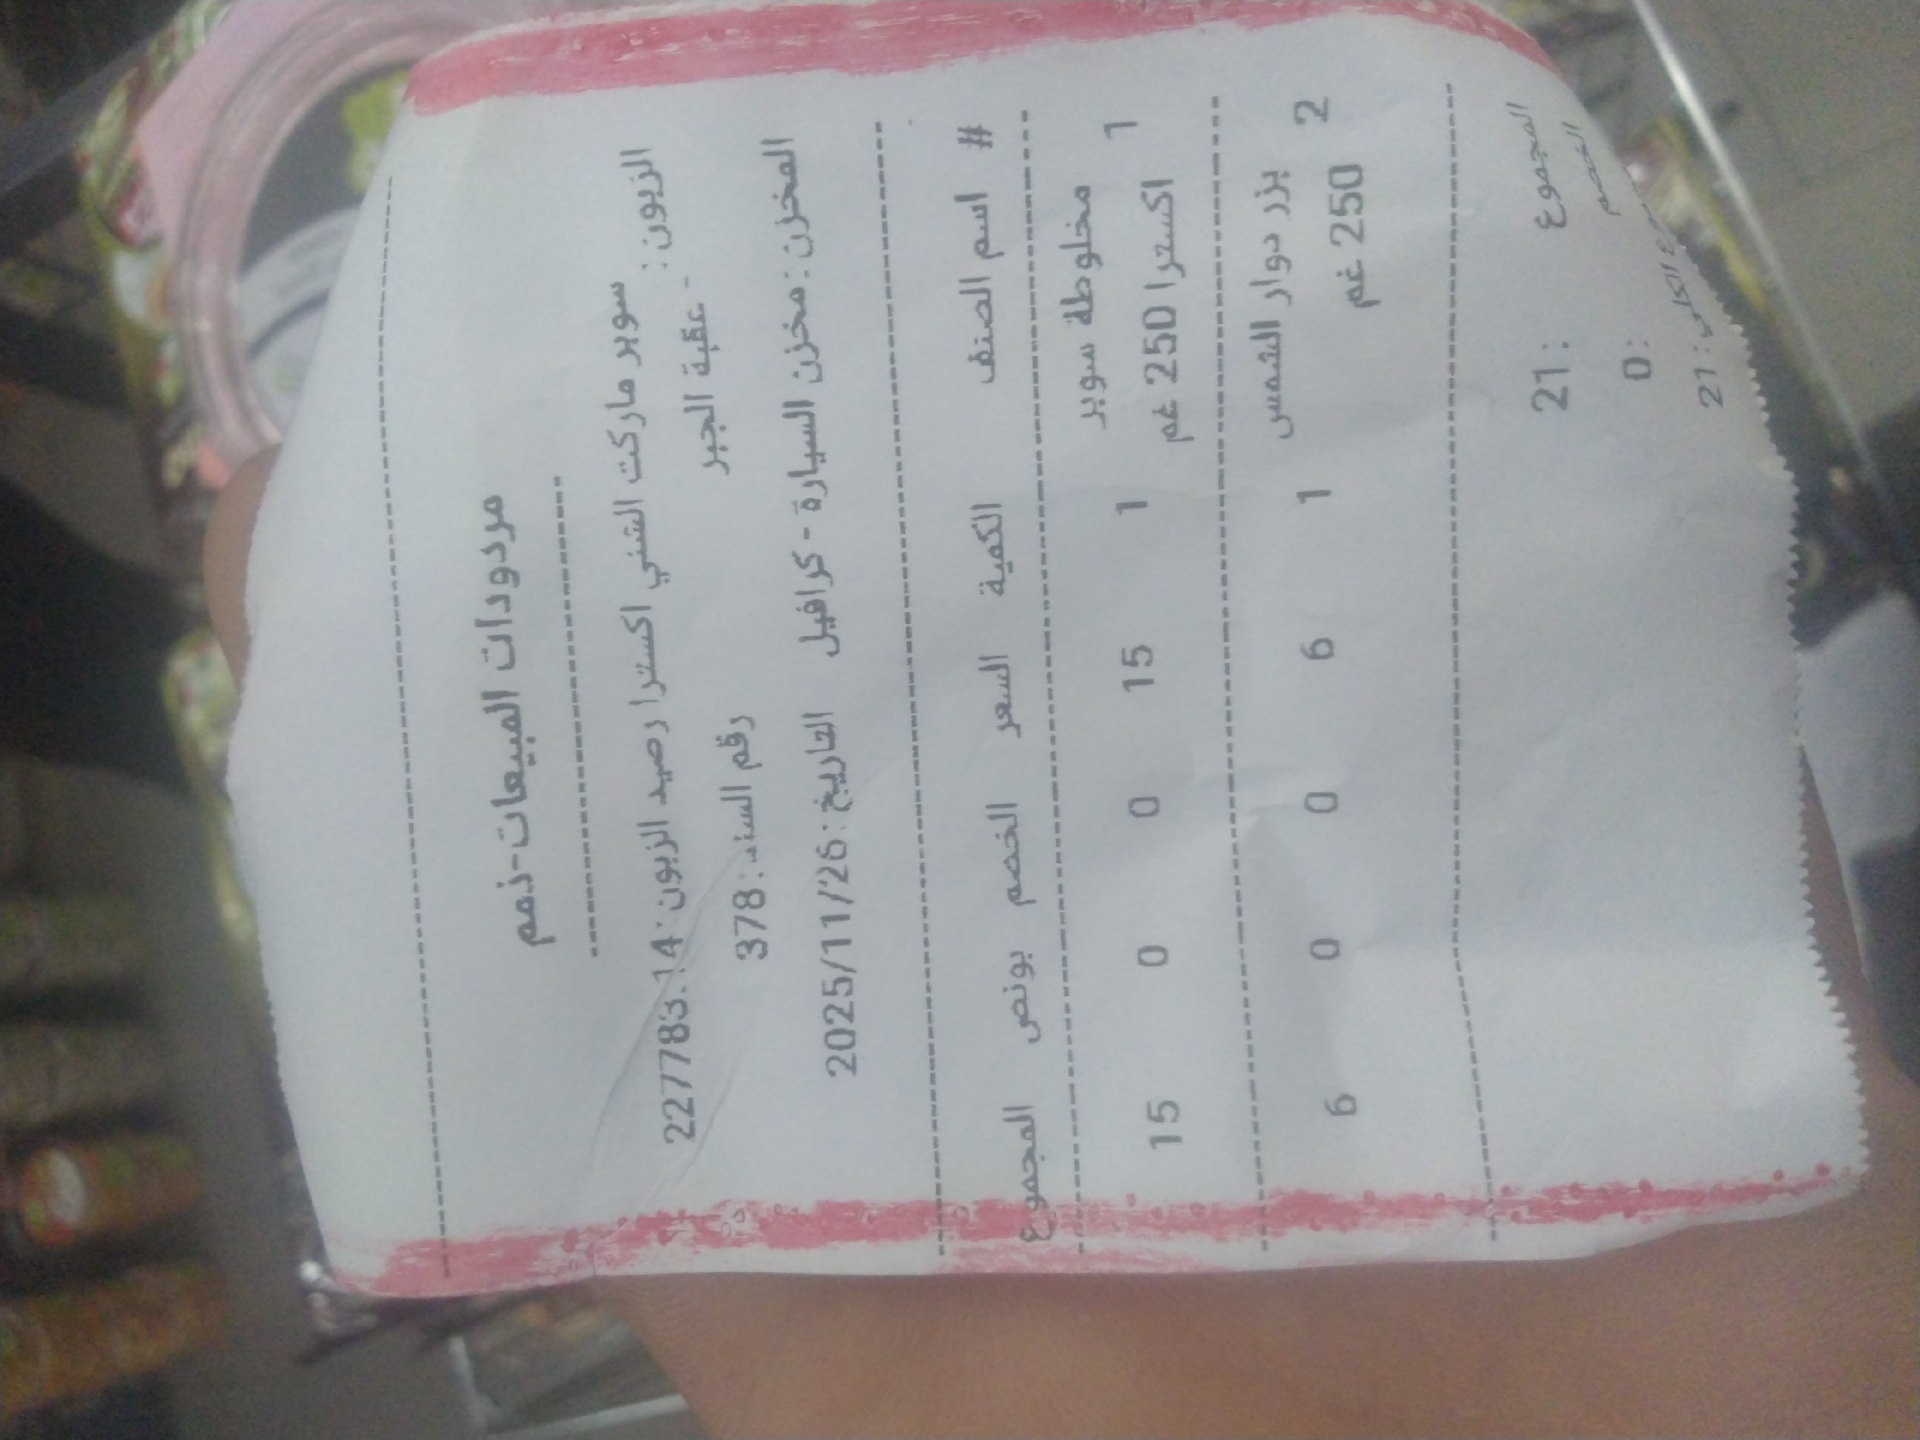 مردودات المبيعات-ذمم
الزبون: سوبر ماركت الشني اكسترا رصيد الزبون: 227783.14
- عقبة الجبر رقم السند: 378
المخزن: مخزن السيارة - كرافيل التاريخ: 2025/11/26
# اسم الصنف الكمية السعر الخصم بونص المجموع
1 مخلوطة سوبر 1 15 0 0 15
اكسترا 250 غم
2 بزر دوار الشمس 1 6 0 0 6
250 غم
المجموع :21
الخصم :0
الكلي :21